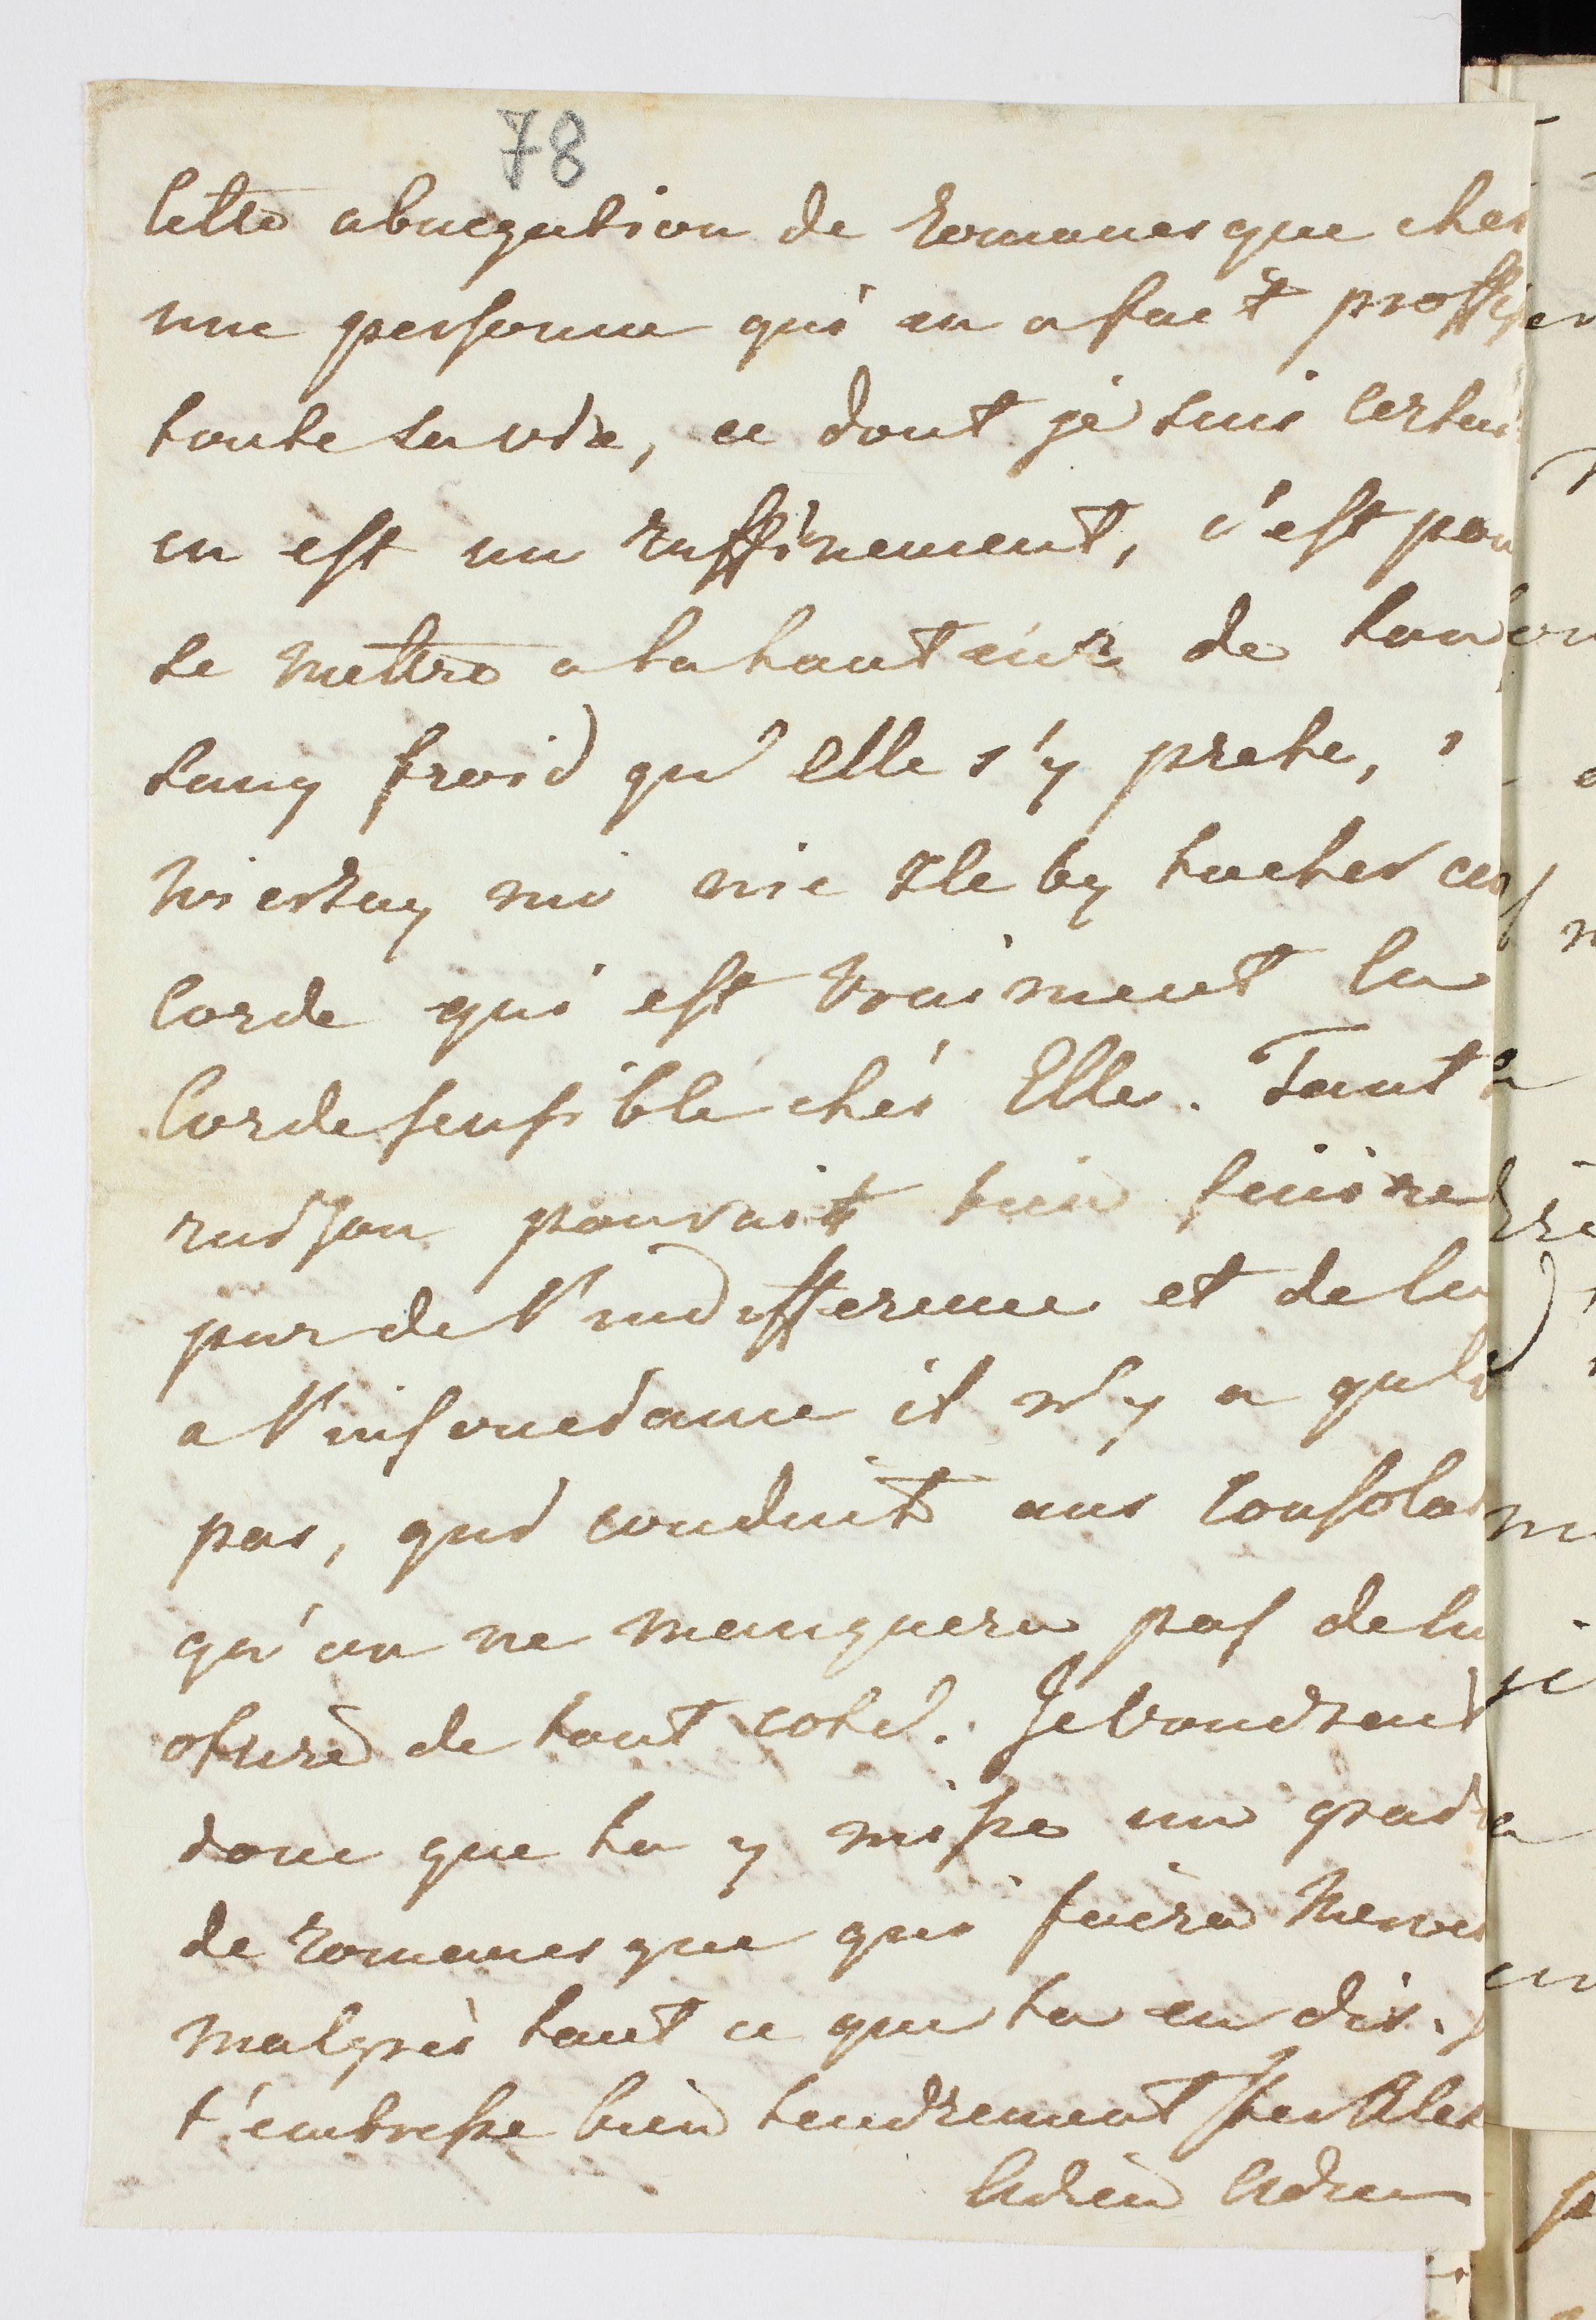 78
Cette abnegation de romanesque ches
une personne qui en a fait proffes
toute sa vie, ce dont je suis certai
en est un raffinement, c'est pou
se mettre a la hauteur de ton
sang froid qu'elle s'y prete,
wierzay mi nie zle by toucher
corde qui est vraiment la
Corde sensible chés Elle. Tant
pouvait bien finire
par de l'indifference et de la
a l'insouciance il n'y a qu'
pas, qui conduit aus consola
qu'on ne manquera pas de lu
ofrire de tout coté. Je voudrant
donc que tu y misse un grad
de romanesque qui faira
malgrés tout ce que tu en dis.
t'embrasse bien tendrement
Adieu Adieu